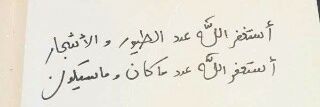 أستغفر اللّٰه عدد الطيور و الأشجار
أستغفر اللّٰه عدد ما كان و ما سيكون